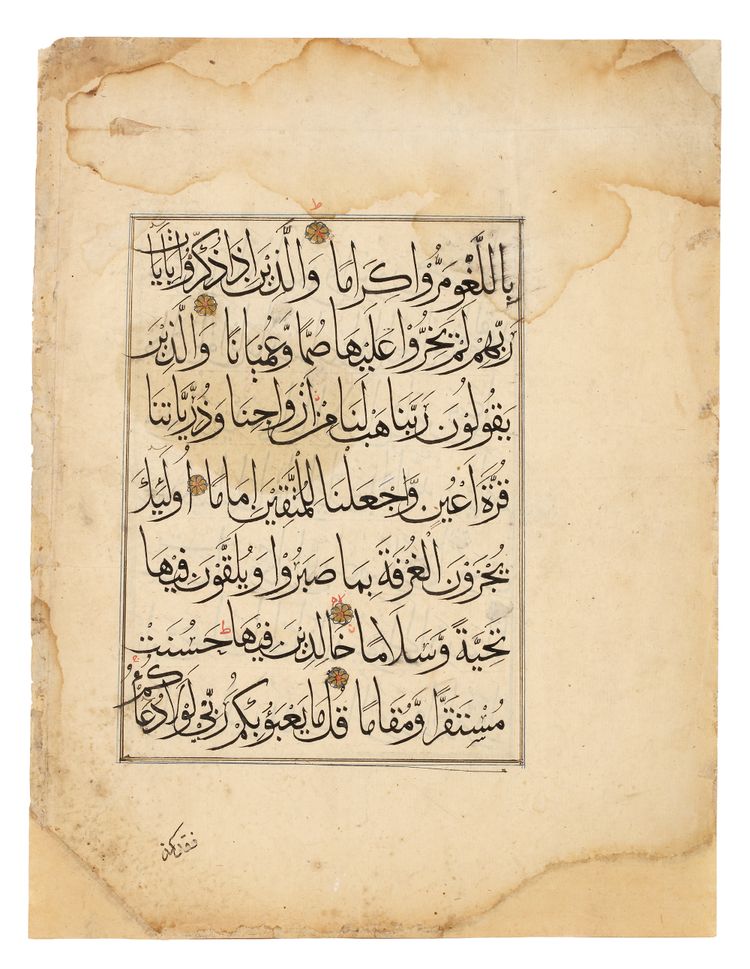 بِاللَّغْوِ مَرُّوا كِرَامًا وَالَّذِينَ اِذَا ذُكِّرُوا بِاٰيَاتِ
رَبِّهِمْ لَمْ يَخِرُّوا عَلَيْهَا صُمًّا وَّعُمْيَانًا وَالَّذِينَ
يَقُولُونَ رَبَّنَا هَبْ لَنَا مِنْ اَزْوَاجِنَا وَذُرِّيَّاتِنَا
قُرَّةَ اَعْيُنٍ وَّاجْعَلْنَا لِلْمُتَّقِينَ اِمَامًا اُولَئِكَ
يُجْزَوْنَ الْغُرْفَةَ بِمَا صَبَرُوا وَيُلَقَّوْنَ فِيهَا
تَحِيَّةً وَّسَلَامًا خَالِدِينَ فِيهَا ط حَسُنَتْ
مُسْتَقَرًّا وَّمُقَامًا قُلْ مَا يَعْبَؤُبِكُمْ رَبِّي لَوْلَا دُعَاؤُكُمْ
فقد كذبتم